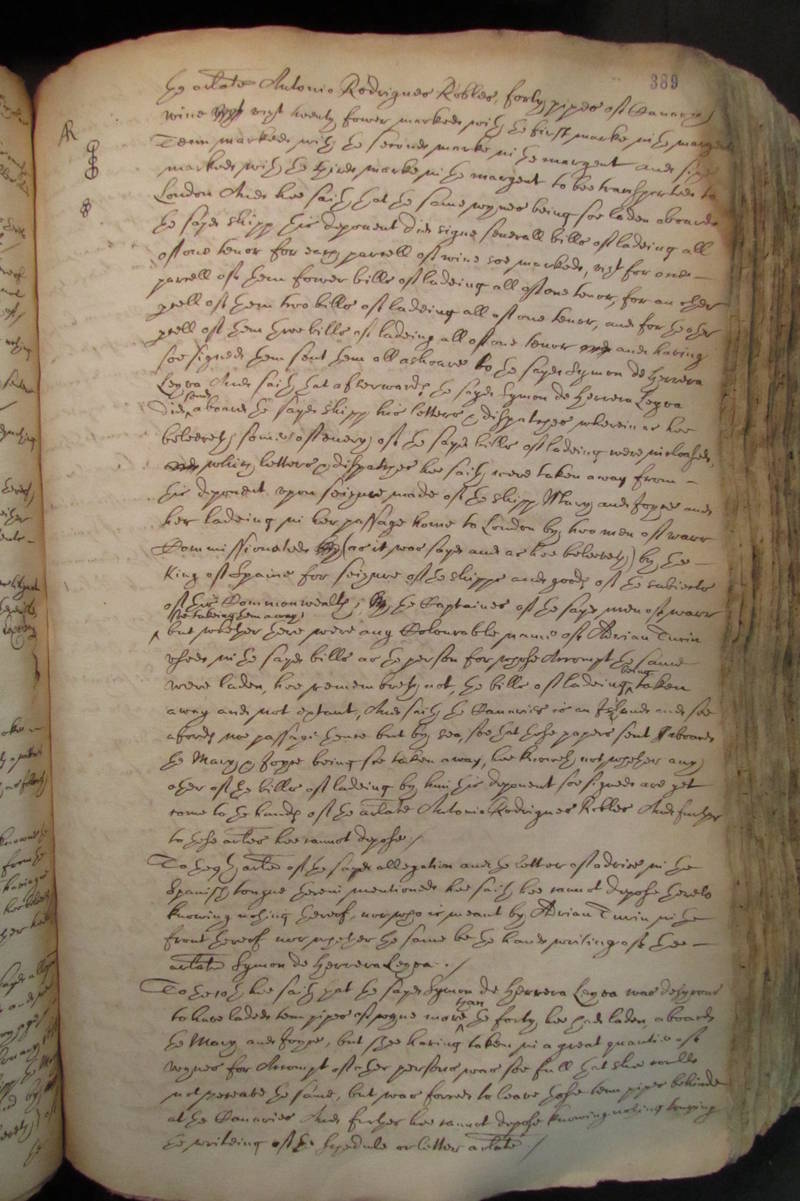 389
the arlate Antonio Rodrigues Robles, forty pipes of Canary
wine vizt twenty fower marked with the first marke in the margent
Tenn marked with the second marke in the margent and six
marked with the third marke in the margent to bee transported to
London And hee saith that the same wynes being soe laden aboard
the sayd shipp this deponent did signe severall bills of ladeing all
of one tenor for each parcell of wine soe marked, vizt for one
parcell of them fower bills of ladeing all of one tenor, for an other
prcell of them two bills of ladeing all of one tenor, and for the other
prcell of them three bills of ladeing all of one tenor and having
soe signed them sent them all ashoare to the sayd Symon de Herrera
Leyva And saith that afterwards the sayd Symon de Herrera Leyva
did send aboard the sayd shipp his letters & dispatches wherein as hee
beleeveth some of every of the sayd bills of ladeing were inclosed,
which letters & dispatches hee saith were taken away from
this deponent upon seizure made of the shipp Mary and Joyce and
her ladeing in her passage home to London by two men of warr
Commissionated (as it was sayd and as hee beleeveth) by the
King of Spaine for seizure of the shipps and goods of the subiects
of this Commonwealth, the Captaines of the sayd men of warr
the takeing them away
but whether there were any Colourable name of Adrian Turin
used in the sayd bills as the person for whose Accompt the same
were laden, hee remembreth not, the bills of ladeing being taken
away and not extant, And saith the Canaries is an Island and soe
affords noe passage thence but by sea, soe that those papers sent aboard
the Mary & Joyce being soe taken away, hee knoweth not whether any
other of the bills of ladeing by him this deponent soe signed are yet
come to the hands of the arlate Antonio Rodrigues Robles And further
to these articles hee cannot depose ./
To the 9th article of the sayd allegation and the letter of advice in the
Spanish tongue therein mentioned hee saith hee cannot depose thereto
knowing nothing thereof, nor who is meant by Adrian Turin in the
front thereof nor whether the same be the hand writing of the
arlate Symon de Herrera Leyva ./
To the 10th hee saith that the sayd Symon de Herrera Leyva was desyrous
to have laded tenn pipes of wyne more than the forty hee had laden aboard
the Mary and Joyce, but shee having taken in a great quantitie of
wynes for Accompt of other persons was soe full that shee could
not receave the same, but was forced to leave those tenn pipes behinde
at the Canaries And further hee cannot depose knowing nothing touching
the writeing of the scedule or letter arlate ./